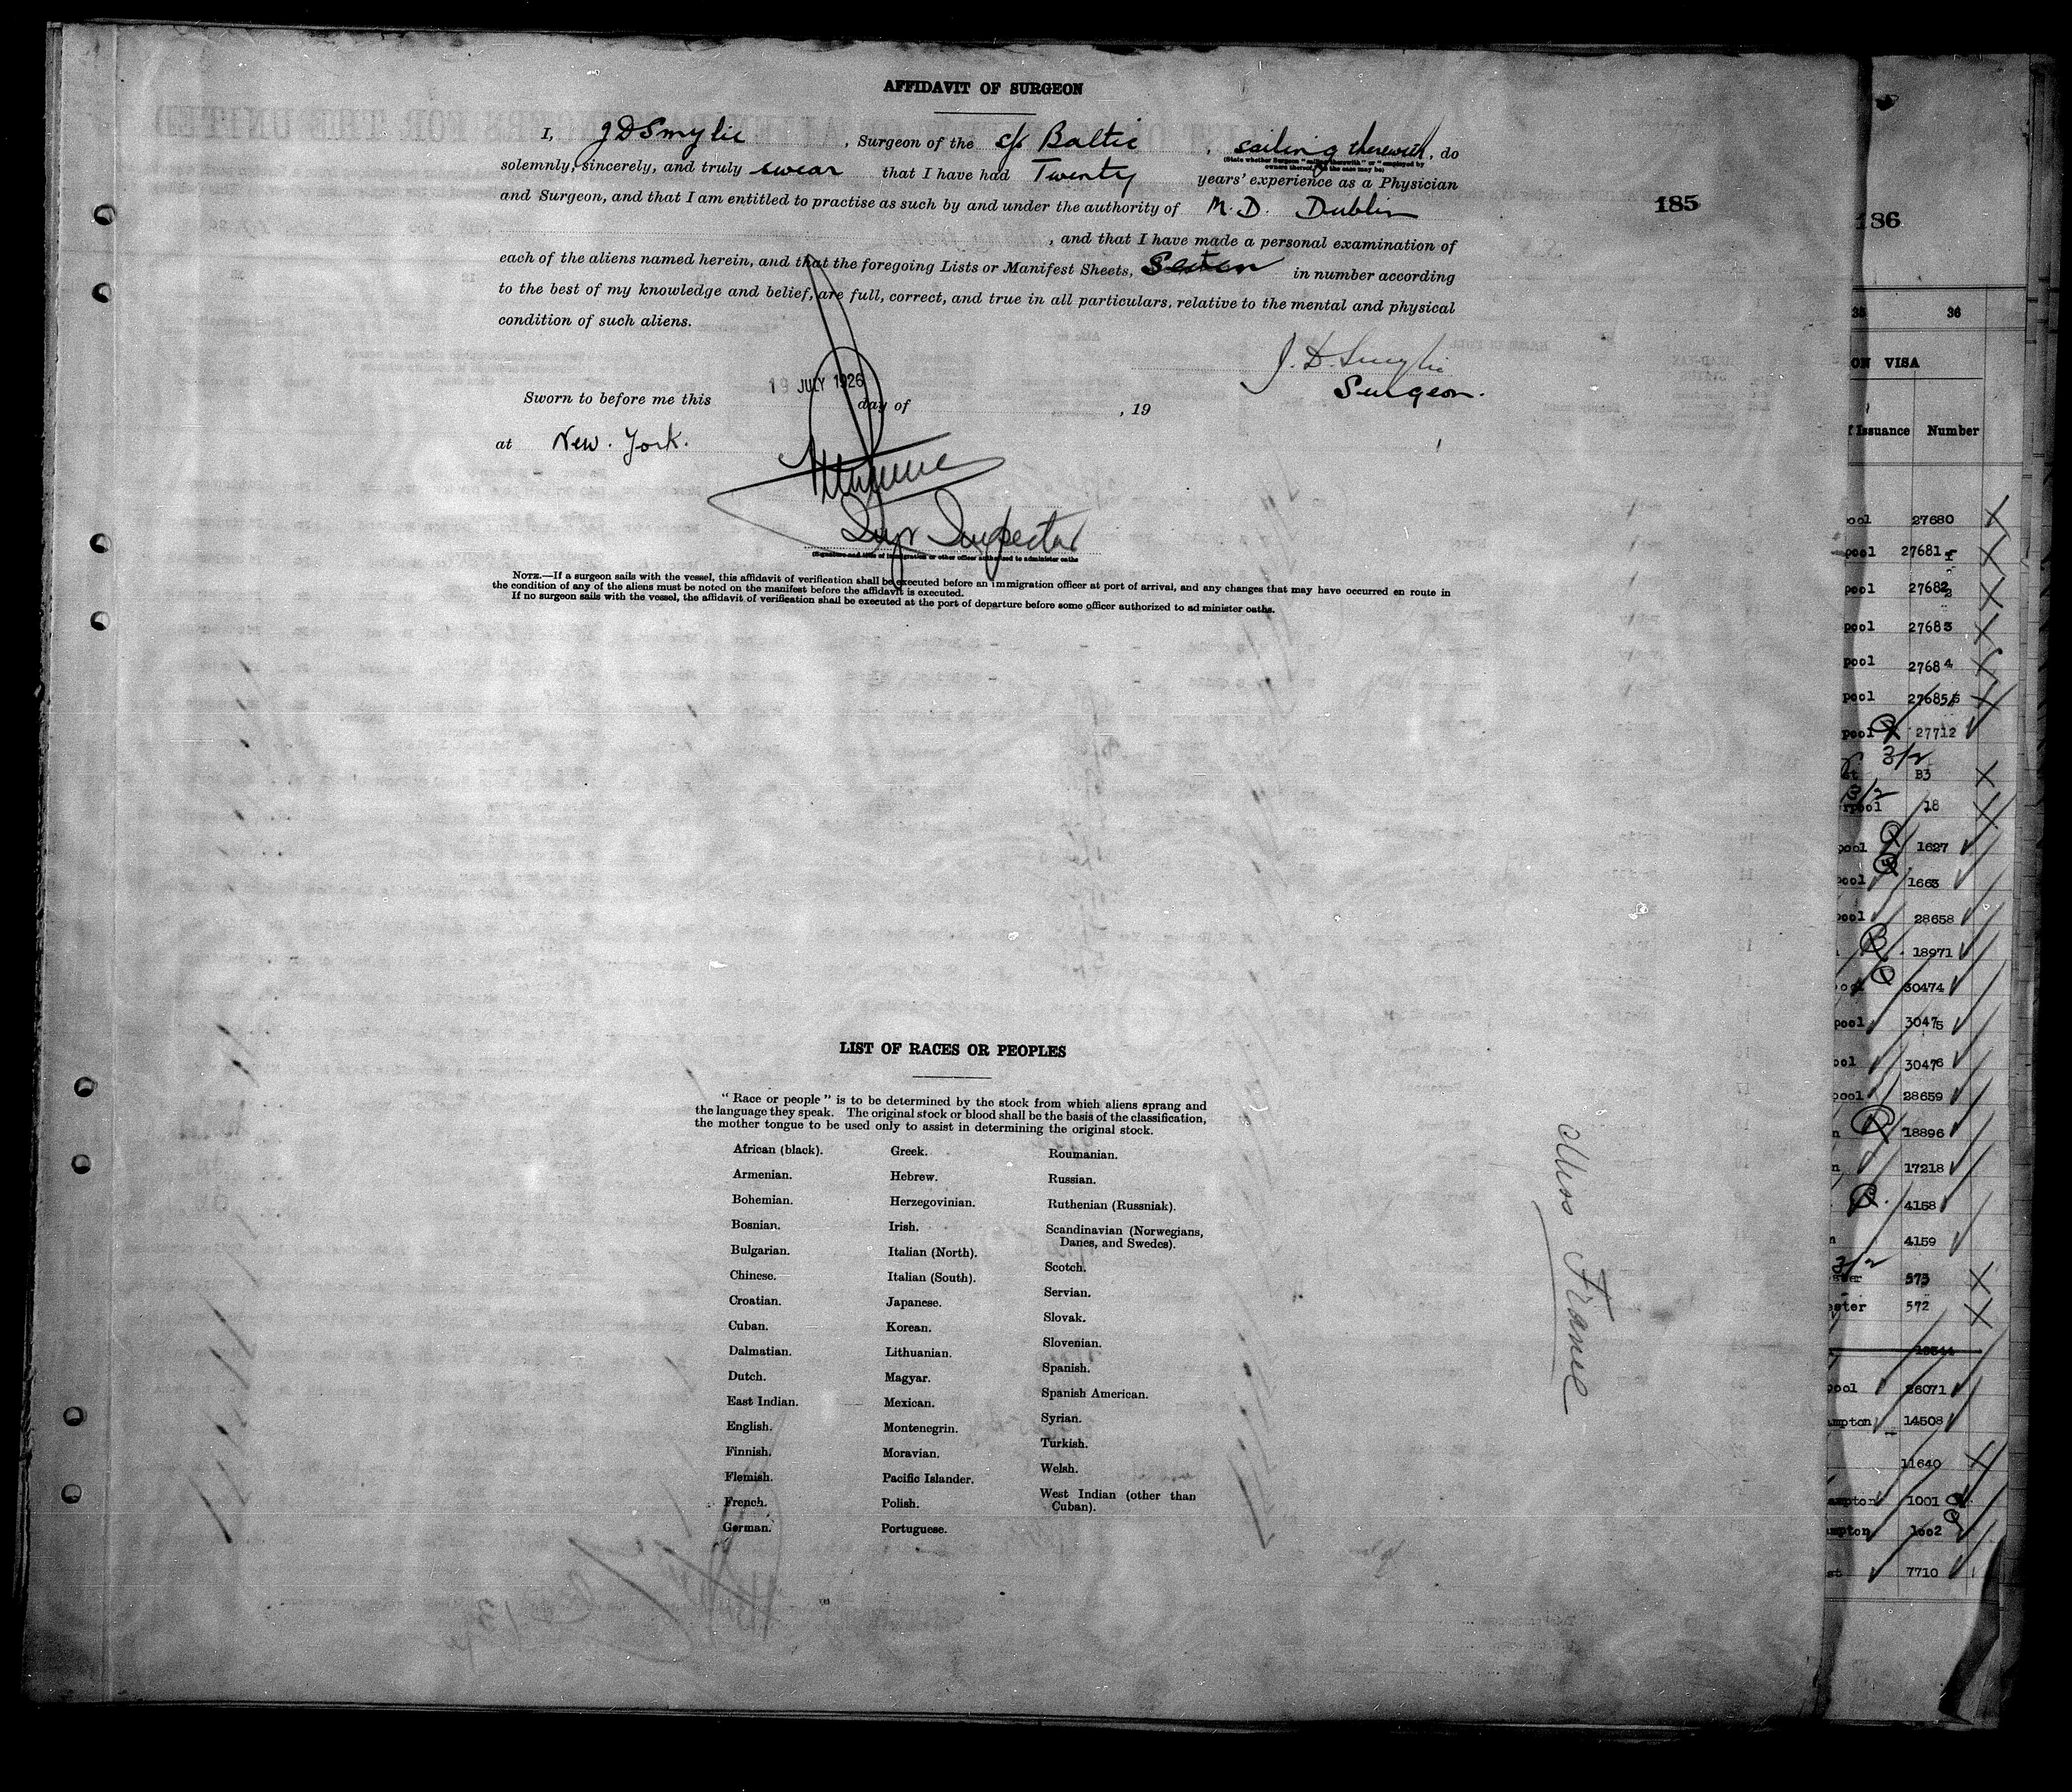 AFFIDAVIT OF SURGEON
I, J D Smylie, Surgeon of the s/s Baltic, sailing therewith, do
(State whether Surgeon "sailing therewith" or "employed by
owners thereof," as the case may be)
solemnly, sincerely, and truly swear that I have had Twenty years' experience as a Physician
and Surgeon, and that I am entitled to practise as such by and under the authority of M.D. Dublin
, and that I have made a personal examination of
each of the aliens named herein, and that the foregoing Lists or Manifest Sheets, in number according
to the best of my knowledge and belief, are full, correct, and true in all particulars, relative to the mental and physical
condition of such aliens.
J. D. Smylie
Surgeon.
19 JULY 1926
Sworn to before me this day of , 19
at New. York.
Inspector
(Signature and title of immigration or other officer authorized to administer oaths
NOTE.—If a surgeon sails with the vessel, this affidavit of verification shall be executed before an immigration officer at port of arrival, and any changes that may have occurred en route in
the condition of any of the aliens must be noted on the manifest before the affidavit is executed.
If no surgeon sails with the vessel, the affidavit of verification shall be executed at the port of departure before some officer authorized to administer oaths.
185
LIST OF RACES OR PEOPLES
"Race or people" is to be determined by the stock from which aliens sprang and
the language they speak. The original stock or blood shall be the basis of the classification,
the mother tongue to be used only to assist in determining the original stock.
African (black).
Armenian.
Bohemian.
Bosnian.
Bulgarian.
Chinese.
Croatian.
Cuban.
Dalmatian.
Dutch.
East Indian.
English.
Finnish.
Flemish.
French.
German.
Greek.
Hebrew.
Herzegovinian.
Irish.
Italian (North).
Italian (South).
Japanese.
Korean.
Lithuanian.
Magyar.
Mexican.
Montenegrin.
Moravian.
Pacific Islander.
Polish.
Portuguese.
Roumanian.
Russian.
Ruthenian (Russniak).
Scandinavian (Norwegians,
Danes, and Swedes).
Scotch.
Servian.
Slovak.
Slovenian.
Spanish.
Spanish American.
Syrian.
Turkish.
Welsh.
West Indian (other than
Cuban).
Miss France
186
35 36
ON VISA
f Issuance Number
pool 27680
pool 27681
pool 27682
pool 27683
pool 27684
pool 27685
pool 27712
3/2
st B3
3/2
rpool 18
pool 1627
pool 1663
pool 28658
18971
pool 30474
pool 30475
ool 30476
pool 28659
n 18896
n 17218
4158
n 4159
3/2
ster 573
ester 572
pool 26071
ampton 14508
11640
ampton 1001
ampton 1002
st 7710